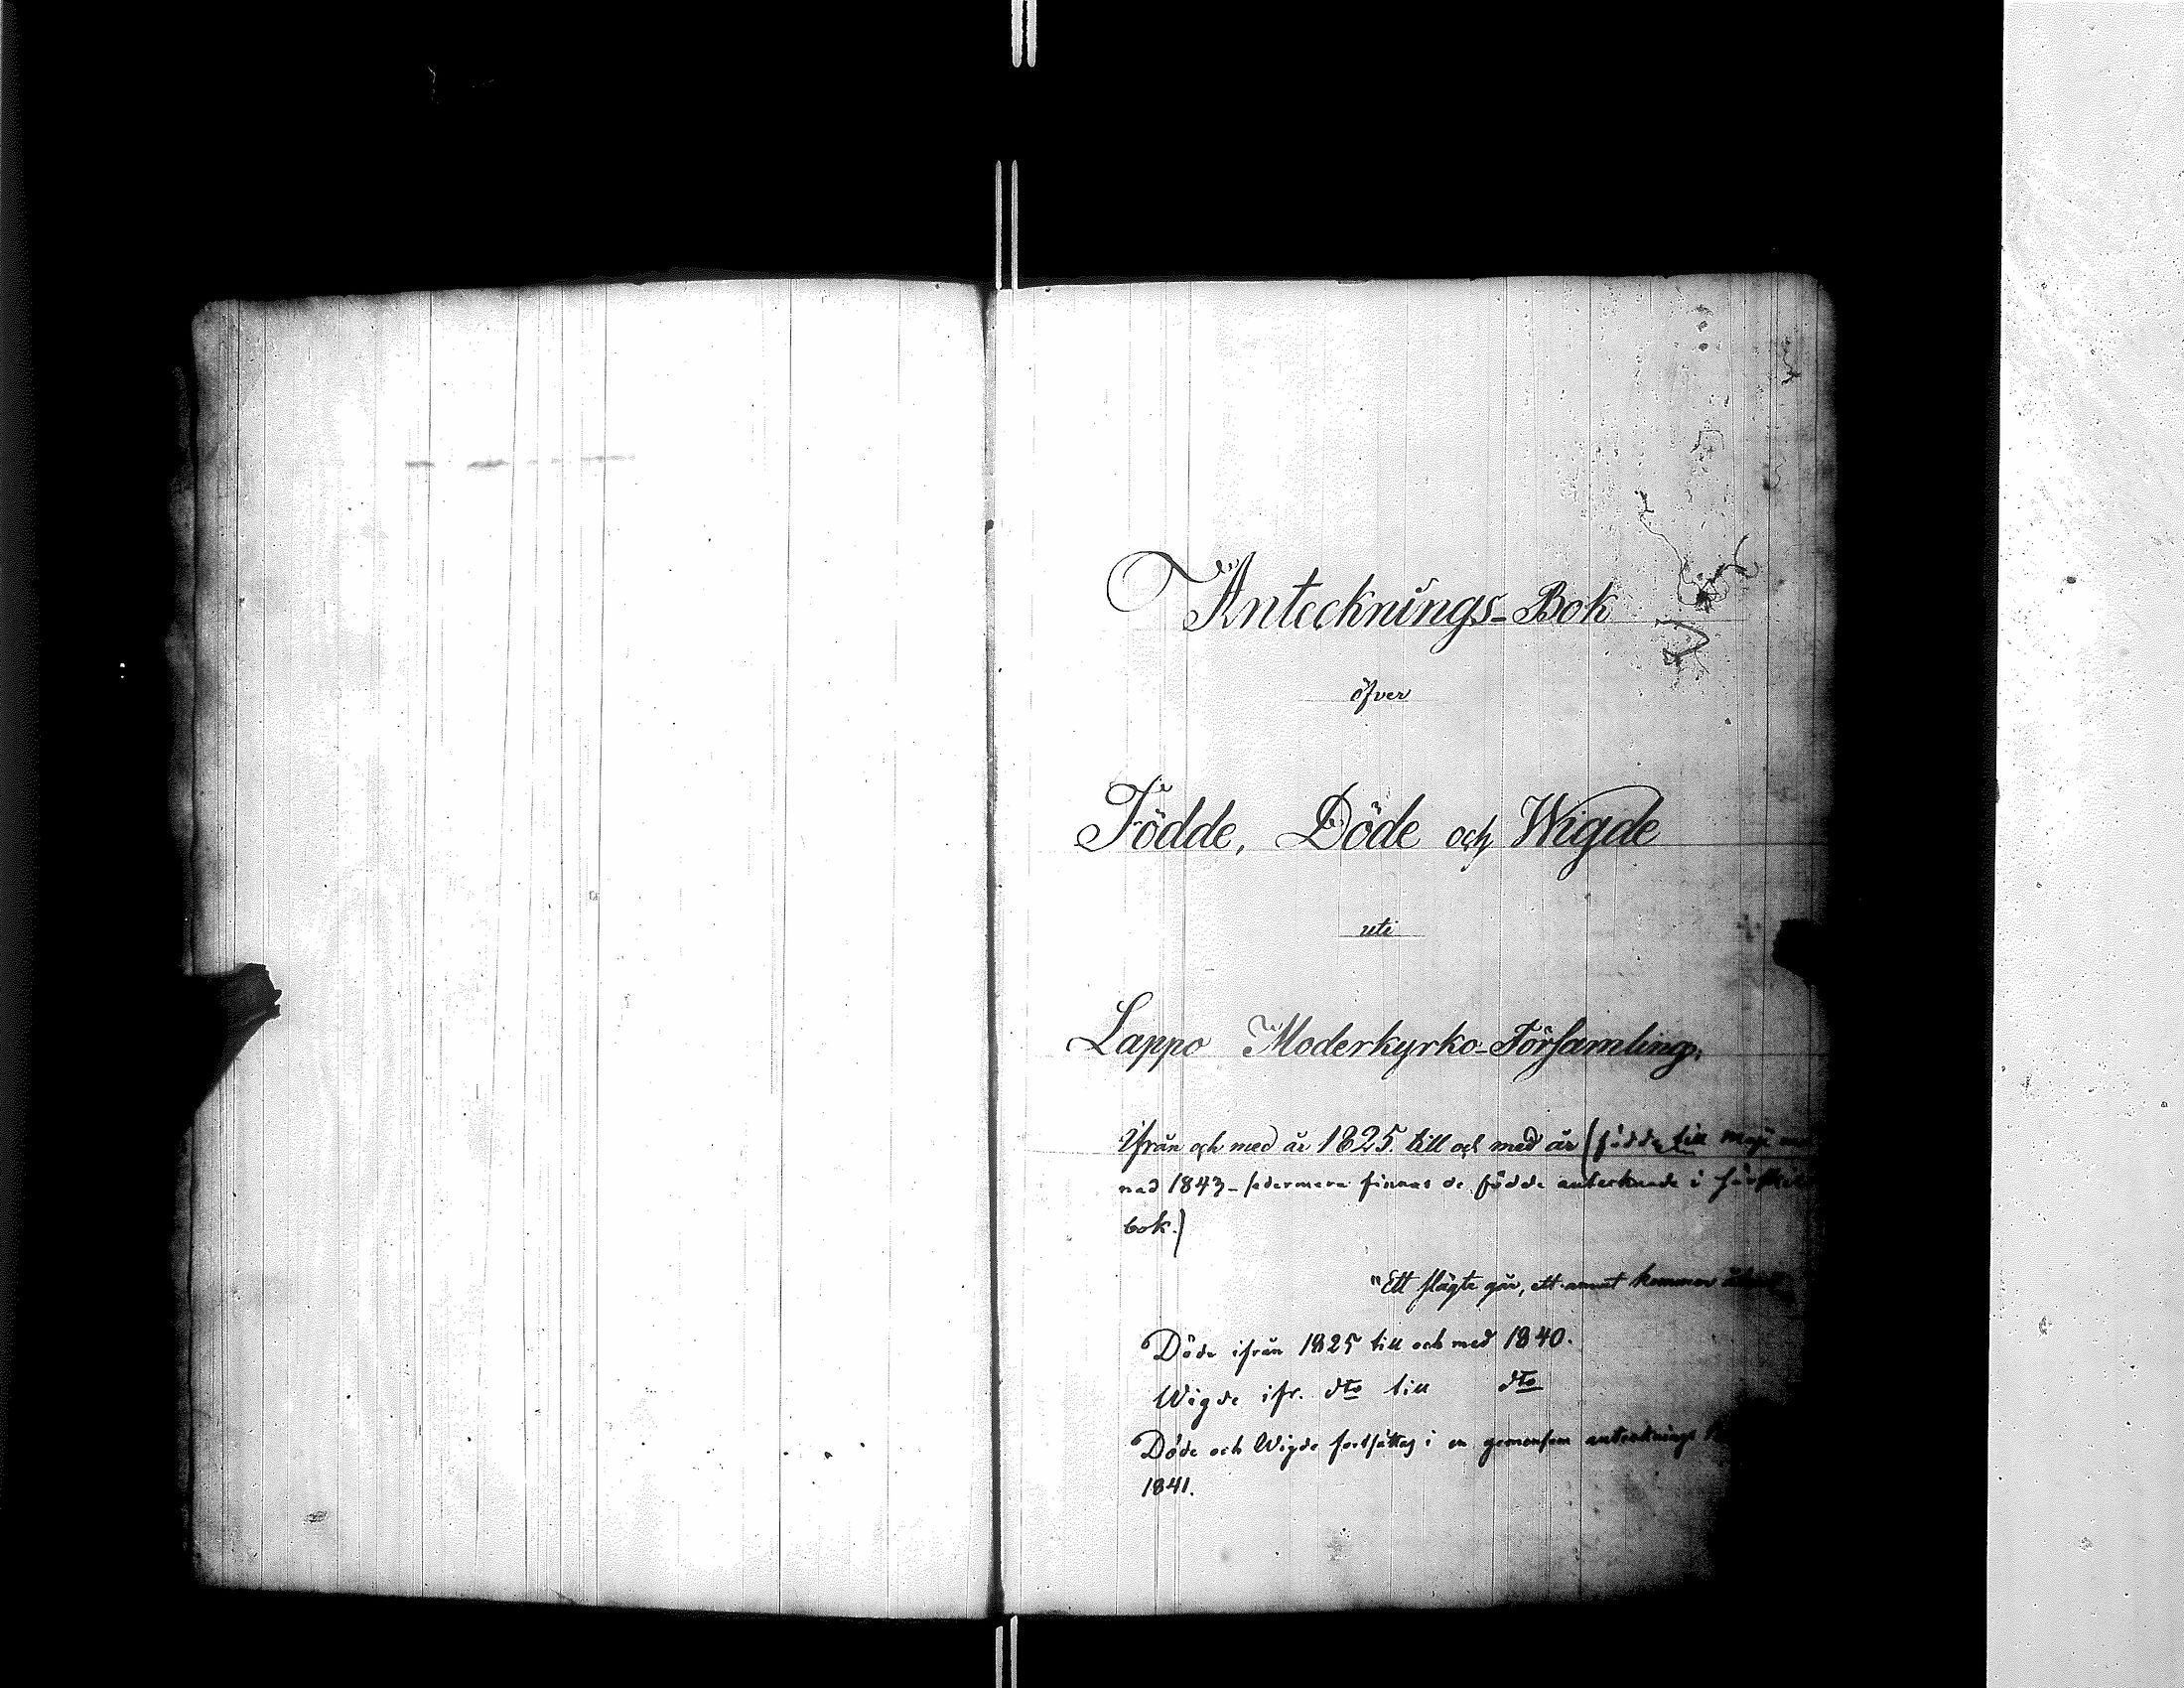 Antecknings-Bok
öfver
Födde, Döde och Wigde
uti
Lappo Moderkyrko-Församling,
ifrån och med år 1825. till och med år (födde till Maji
nad 1843 - sedermera finnas de födde antecknade i
bok.)
"Ett slägte går, ett annat kommer
Döde ifrån 1825 till och med 1840.
Wigde ifr. dto till dto
Döde och Wigde fortsättas i en gemensam antecknings
1841.